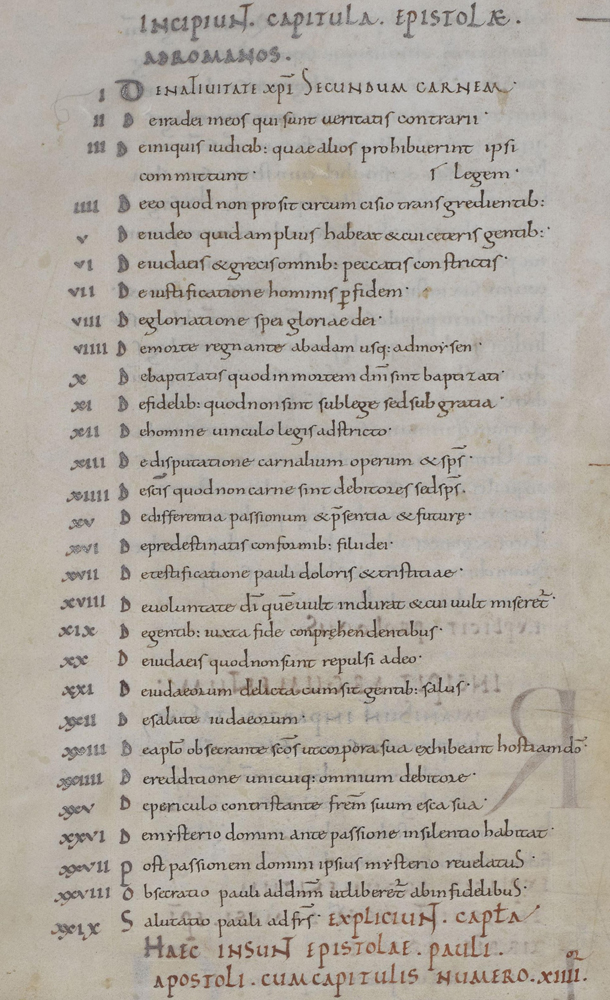 INCIPIUNT. CAPITULA. EPISTOLÆ.
ADROMANOS.
I DENATIUITATE xpī SECUNDUM CARNEM·
II D eiradei meos qui sunt ueritatis contrarii·
III D einiquis iudicib: quae alios prohibuerint ipsi
committunt· legem·
IIII D eeo quod non prosit circumcisio transgredientib:
V D eiudeo quid amplius habeat & cui ceteris gentib:·
VI D eiudaeis & grecis omnib: peccatis constrictis·
VII D eiustificatione hominis ꝑ fidem·
VIII D egloriatione spei gloriae dei·
VIIII D emorte regnante abadam usq: admoysen·
X D ebaptizatis quod in mortem dn̄i sint baptizati·
XI D efidelib: quod non sint sub lege sed sub gratia·
XII D ehomine uinculo legis adstricto·
XIII D edisputatione carnalium operum & sp̄s·
XIIII D esc̄is quod non carne sint debitores sed sp̄s.
XV D edifferentia passionum & p̄sentia & futurę·
XVI D epredestinatis conformib: filii dei·
XVII D etestificatione pauli doloris & tristitiae·
XVIII D euoluntate dī quē uult indurat & cui uult miseret̄·
XIX D egentib: iuxta fide conprehendentibus·
XX D eiudaeis quod non sint repulsi adeo·
XXI D eiudaeorum delicta cum sit gentib: salus·
XXII D esalute iudaeorum·
XXIII D eaplō obsecrante sc̄os ut corpora sua exhibeant hostiam dō·
XXIIII D eredditione unicuiq: omnium debitore·
XXV D epericulo contristante fr̄em suum esca sua·
XXVI D emysterio domini ante passione in silentio habitat·
XXVII P ost passionem domini ipsius mysterio reuelatus·
XXVIII O bsecratio pauli addn̄m ut liberet̄ ab infidelibus·
XXIX S alutatio pauli adfr̄s· EXPLICIUNT. CAPT̄A
HAEC INSUNT EPISTOLAE. PAULI.
APOSTOLI. CUM CAPITULIS NUMERO. XIIII.